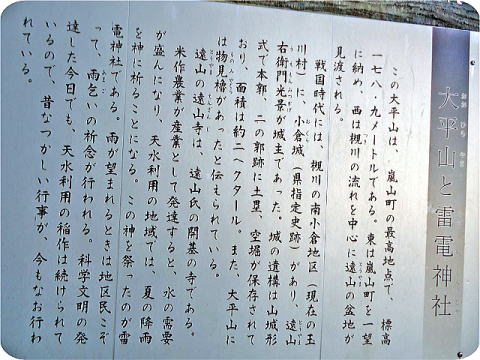 大平山と雷電神社
この大平山は、嵐山町の最高地点で、標高
一七八・九メートルである。東は嵐山町を一望
に納め、西は槻川の流れを中心に遠山の盆地が
見渡される。
戦国時代には、槻川の南小倉地区（現在の玉
川村）に、小倉城（県指定史跡）があり、遠山
右衛門光景が城主であった。城の遺構は山城形
式で本郭、二の郭跡に土塁、空堀が保存されて
おり、面積は約二ヘクタール。また、大平山に
は物見櫓があったと伝えられている。
遠山の遠山寺は、遠山氏の開基の寺である。
米作農業が産業として発達すると、水の需要
が盛んになり、天水利用の地域では、夏の降雨
を神に祈ることになる。この神を祭ったのが雷
電神社である。雨が望まれるときは地区民こぞ
って、雨乞いの祈念が行われる。科学文明の発
達した今日でも、天水利用の稲作は続けられて
いるので、昔なつかしい行事が、今もなお行わ
れている。